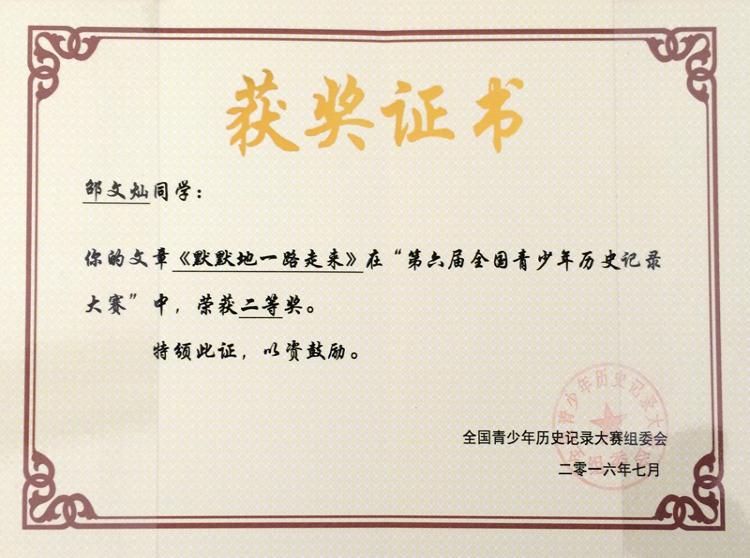 获奖证书
邵文灿同学：
你的文章《默默地一路走来》在“第六届全国青少年历史记录
大赛”中，荣获二等奖。
特颁此证，以资鼓励。
全国青少年历史记录大赛组委会
二零一六年七月
全国青少年历史记录大赛
组委会